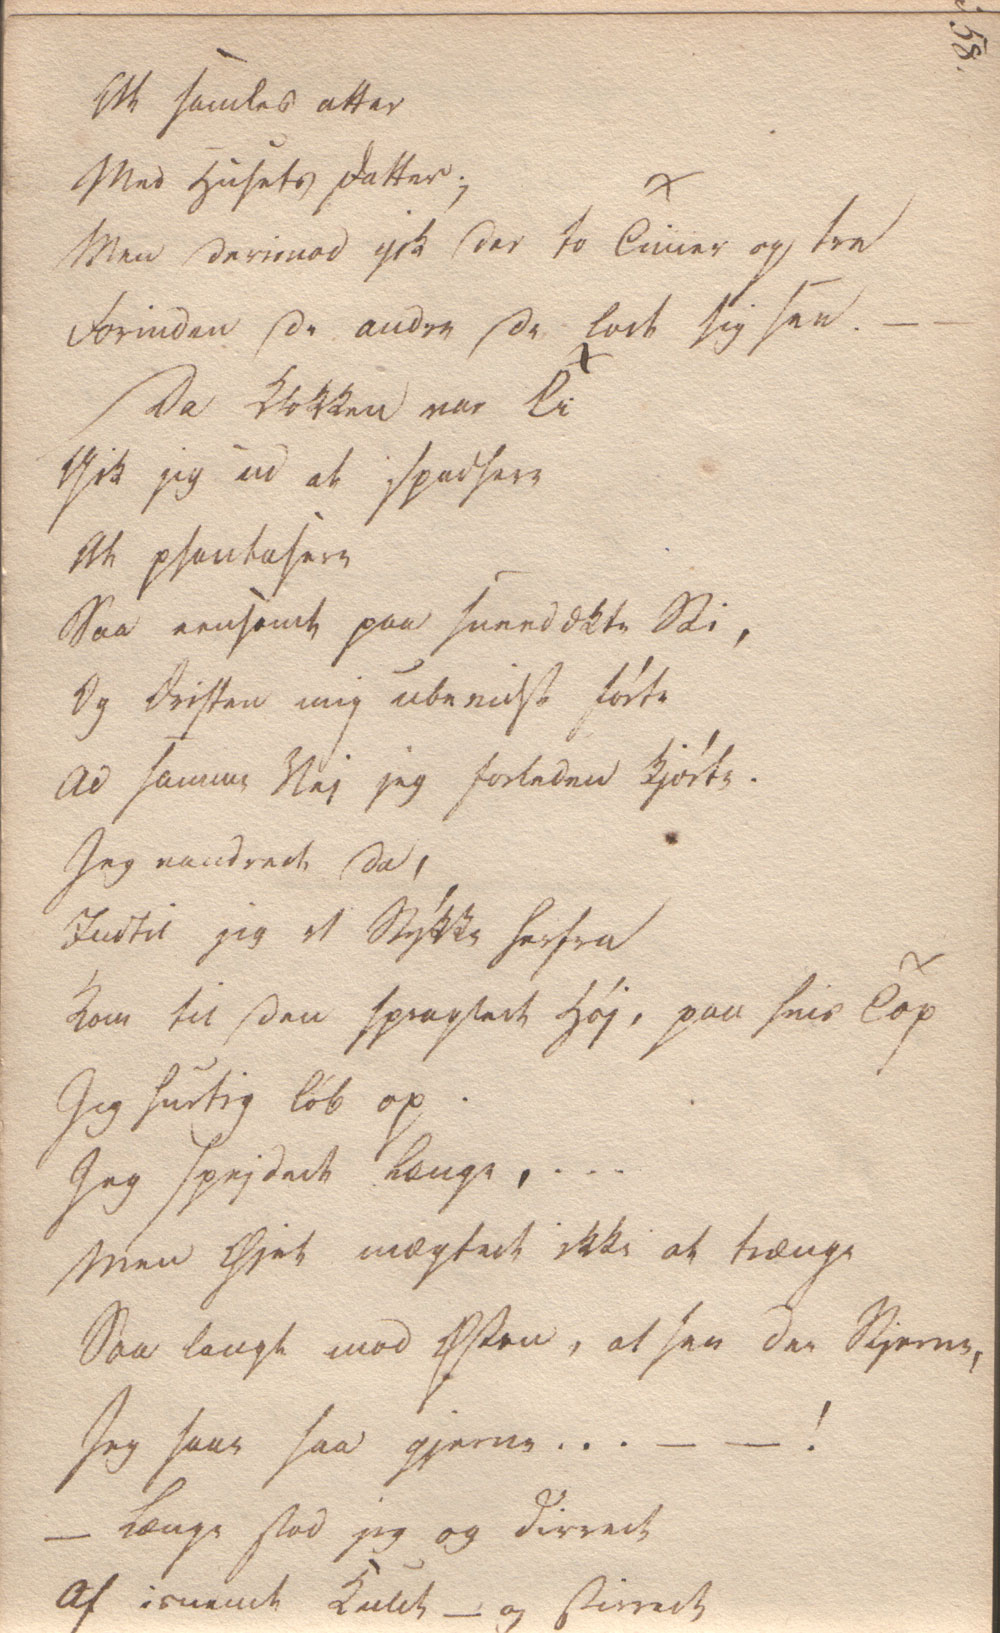 58.
At samles atter
Med Husets Datter;
Men derimod gik der to Timer og tre
Forinden de andre de lode sig see. — —
Da Klokken var Ti
Gik jeg ud at spadsere
At phantasere
Saa eensomt paa sneedækte Sti,
Og Driften mig ubevidst førte
Ad samme Vej jeg forleden kjørte.
Jeg vandrede da,
Indtil jeg et Stykke herfra
Kom til den spraglede Høj, paa hvis Top
Jeg hurtig løb op.
Jeg spejdede længe, . . .
Men Øjet mægtede ikke at trænge
Saa langt mod Østen, at see den Stjerne,
Jeg saae saa gjerne . . . — — !
— Længe stod jeg og dirrede
Af isnende Kulde — og stirrede